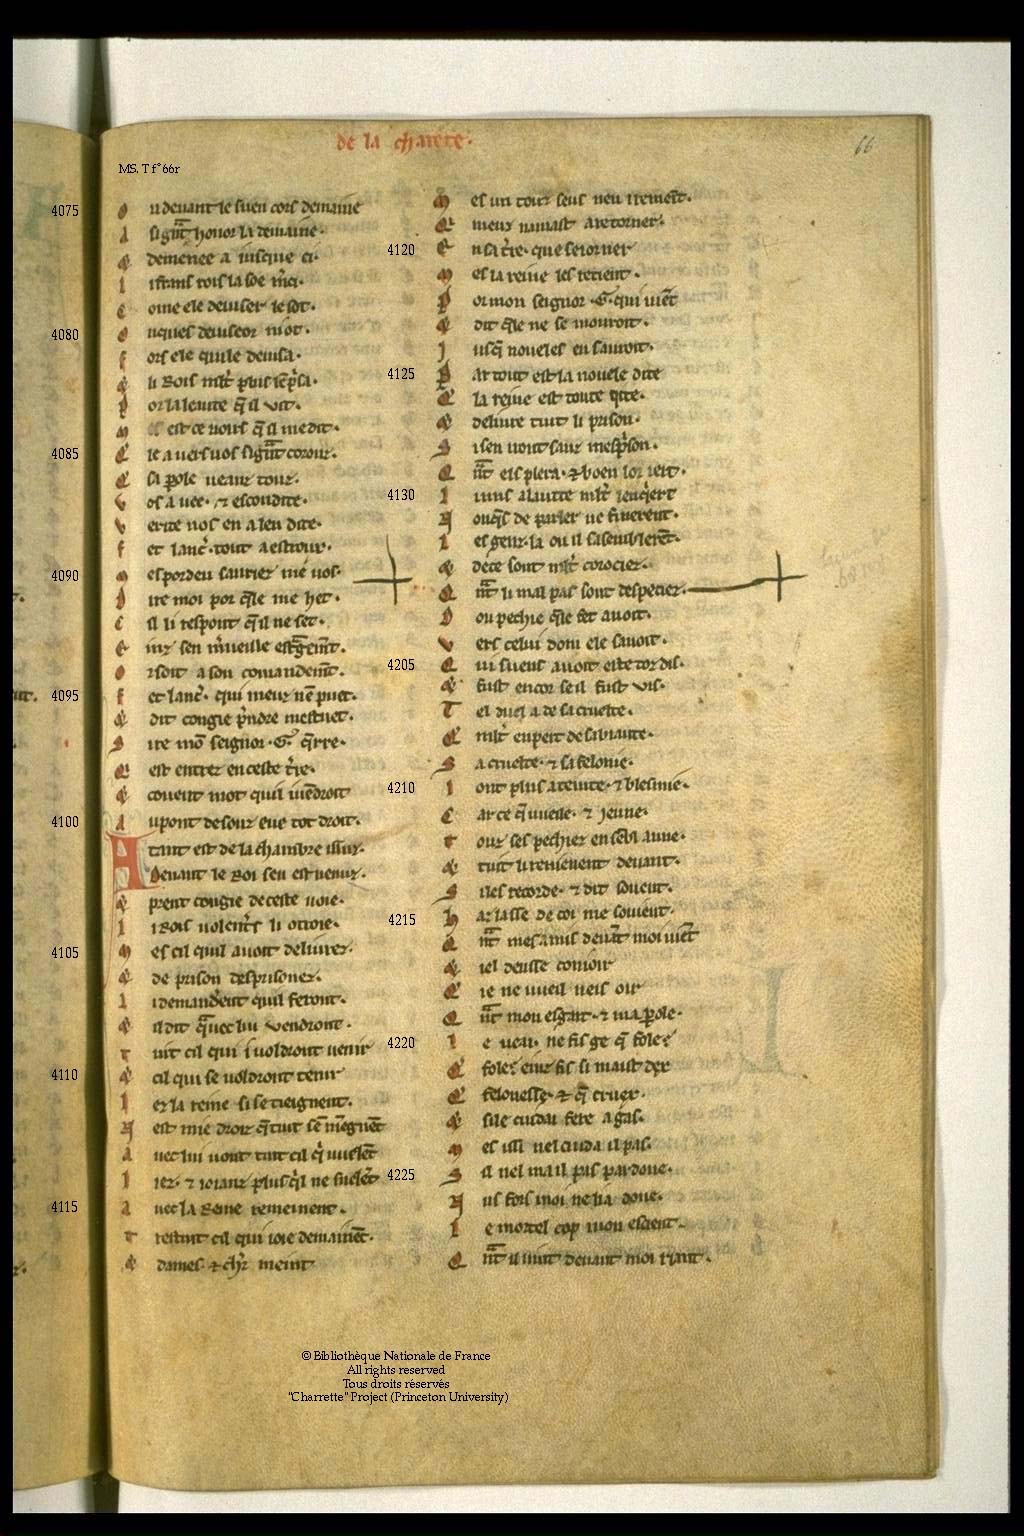 de la charete.
66
MS. T f° 66r
4075 O u devant le suen cors demaine
A si grant honor la demaine.
Q demenee a jusque ci.
L i frans rois la soe merci.
C ome ele deviser le sot.
4080 O nques deviseor ni ot.
F ors ele qui le devisa.
Q li Rois mlt plus sen prisa.
P or la leaute q il vit.
M es est ce voirs q il me dit.
4085 E ie a vers vos si grant coroz.
E sa parole veant toz.
V os a vee. et escondite.
V erite vos en a len dite.
F et lanc. tout a estrouz.
4090 M es por deu sauriez me vos.
D ire moi por qele me het.
C il li respont q il ne set.
E inz sen merveille estrangement.
O r soit a son comandement.
4095 F et lanc. qui meuz nen puet.
Q dit congie prendre mestuet.
S ire mon seignor .G. querre.
Q est entrez en ceste terre.
Q covent mot quil viendroit
4100 A u pont desouz eue tot droit.
A tant est de la chambre issuz.
Devant le Roi sen est venuz.
Q prent congie de ceste voie.
L i Rois volentiers li otroie.
4105 M es cil quil avoit delivrez.
Q de prison desprisonez.
L i demandent quil feront.
Q il dit q avec lui vendront.
T uit cil qui i voldront venir
4110 Q cil qui se voldront tenir
L ez la reine si se tieignent.
N est mie droiz q tuit sen viegnent
A vec lui vont tuit cil qi vuelent
L iez. et joianz plus qil ne suelent
4115 A vec la Reine remeinent.
T restuit cil qui joie demainent.
Q dames et chrs meint
M es un tout seus nen i rement.
Q meuz namast a retorner.
4120 E n sa tre. que seiorner
M es la reine les retient.
P or mon seignor .G. qui vient
Q dit qele ne se mouroit.
J usq noveles en sauroit.
4125 P ar tout est la novele dite
Q la reine est toute qite.
Q delivre tuit li prison.
S i sen vont sanz mesprison.
Q nt eis plera. et boen lor iert.
4130 L i uns a lautre mlt i enqiert
N onqes de parler ne finerent.
L es genz. la ou il sasemblerent.
Q de ce sont mlt corocie.
Q nt li mal pas sont despecie.
D ou pechie qele fet avoit.
V ers celui dont ele savoit.
4205 Q ui suens avoit este toz dis.
Q fust encor se il fust vis.
T el duel a de sa cruelte.
Q mlt en pert de sa biaute.
S a cruelte. et sa felonie.
4210 L ont plus ateinte. et blesmie.
C ar ce q vueille. et jeune.
T oz ses pechiez ensembl aune.
Q tuit li revienent devant.
S i les recorde. et dit sovent.
4215 H a lasse de coi me sovient.
Q nt mes amis devant moi vient
Q iel deusse conioir
Q ie ne vueil neis oir
Q nt mon esgart. et ma parole.
4220 L e veai. ne fis ge q fole.
Q fole? einz fis si maist dex
Q felonesse. et q cruex.
Q si le cuidai fere a gas.
M es issi nel cuida il pas.
4225 S il nel ma il pas pardone.
N us fors moi ne li a done.
L e mortel cop mon escient.
Q nt il vint devant moi riant.
© Bibliothèque Nationale de France
All rights reserved
Tous droits réservés
"Charrette" Project (Princeton University)